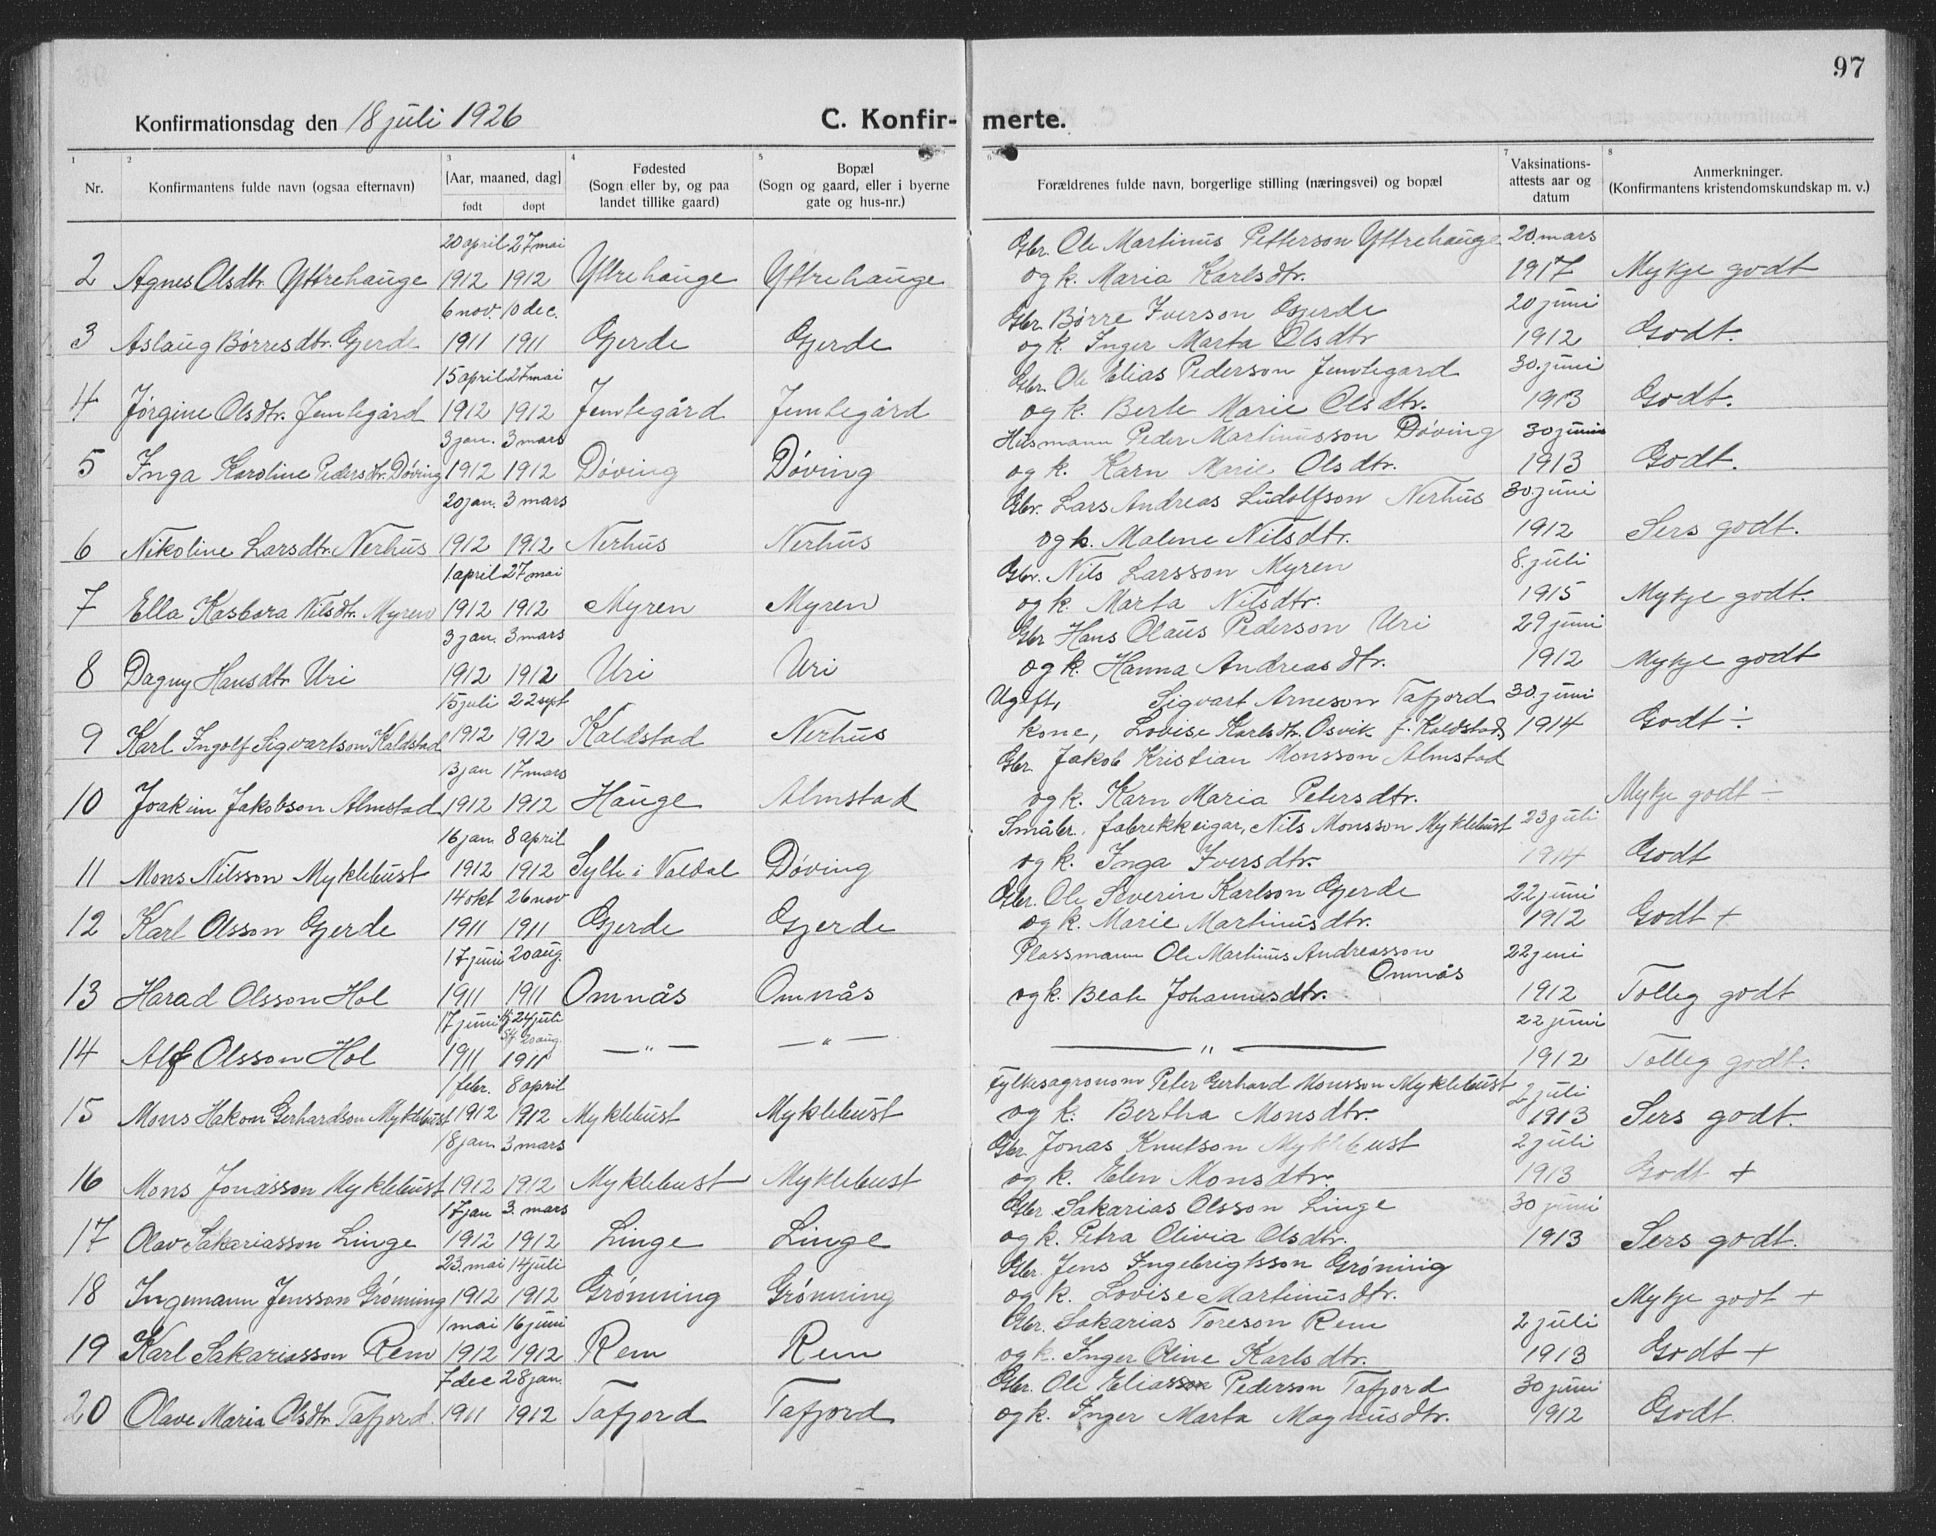 97
Konfirmationsdag den 18 juli 1926 C. Konfirmerte.
1 2 3 4 5 6 7 8
Nr. Konfirmantens fulde navn (ogsaa efternavn) [Aar, maaned, dag] født døpt Fødested (Sogn eller by, og paa landet tillike gaard) Bopæl (Sogn og gaard, eller i byerne gate og hus-nr.) Forældrenes fulde navn, borgerlige stilling (næringsvei) og bopæl Vaksinations-attests aar og datum Anmerkninger. (Konfirmantens kristendomskundskap m. v.)
20 april 27 mai Gbr. Ole Martinus Petterson Yttrehauge 20. mars
2 Agnes Olsdtr. Yttrehauge 1912 1912 Yttrehauge Yttrehauge og k. Maria Karlsdtr. 1917 Mykje godt
6 nov. 10 dec. Gbr. Børre Iverson Gjerde 20 juni
3 Aslaug Børresdtr. Gjerde 1911 1911 Gjerde Gjerde og k. Inger Marta Olsdtr 1912 Godt.
15 april 27 mai Gbr. Ole Elias Pederson Jemtegard 30. juni
4 Jørgine Olsdtr. Jemtegård 1912 1912 Jemtegård Jemtegård og k. Berte Marie Olsdtr. 1913 Godt.
3 jan. 3 mars Husmann Peder Martinusson Døving 30 juni
5 Inga Karoline Pedersdtr. Døving 1912 1912 Døving Døving og k. Karn Marie Olsdtr. 1913 Godt.
20 jan. 3 mars Gbr. Lars Andreas Ludolfson Nerhus 30 juni
6 Nikoline Larsdtr. Nerhus 1912 1912 Nerhus Nerhus og k. Malene Nilsdtr. 1912 Sers godt.
1 april 27 mai Gbr. Nils Larsson Myren 8. juli
7 Ella Kasbara Nilsdtr. Myren 1912 1912 Myren Myren og k. Marta Nilsdtr. 1915 Mykje godt.
3 jan. 3 mars Gbr Hans Olaus Pederson Uri 29 juni
8 Dagny Hansdtr Uri 1912 1912 Uri Uri og k. Hanna Andreasdtr. 1912 Mykje godt
15 juli 22 sept Ugift, Sigvart Arneson Tafjord 30. juni
9 Karl Ingolf Sigvartson Kaldstad 1912 1912 Kaldstad Nerhus kone, Lovise Karlsdtr. Osvik f. Kaldstad 1914 Godt ÷
13 jan 17 mars Gbr. Jakob Kristian Monsson Almstad
10 Joakim Jakobson Almstad 1912 1912 Hauge Almstad og k. Karn Maria Petersdtr. Mykje godt –
16 jan 8 april Småbr. fabrikkeigar, Nils Monsson Myklebust 23 juli
11 Mons Nilsson Myklebust 1912 1912 Sylte i Valdal Døving og k. Inga Iversdtr. 1914 Godt
14 okt 26 nov Gbr. Ole Severin Karlson Gjerde 22 juni
12 Karl Olsson Gjerde 1911 1911 Gjerde Gjerde og k. Marie Martinusdtr. 1912 Godt +
17 juni 20 aug. Plassmann Ole Martinus Andreasson Omnås 22 juni
13 Harad Olsson Hol 1911 1911 Omnås Omnås og k. Beate Johannesdtr. 1912 Tolleg godt
17 juni 24 juli 20 aug. 22 juni
14 Alf Olsson Hol 1911 1911 — " — — " — — " — 1912 Tolleg godt.
1 febr. 8 april Fylkesagronom Peter Gerhard Monsson Myklebust 2 juli
15 Mons Hakon Gerhardson Myklebust 1912 1912 Myklebust Myklebust og k. Bertha Monsdtr. 1913 Sers godt.
18 jan. 3 mars Gbr. Jonas Knutson Myklebust 2 juli
16 Mons Jonasson Myklebust 1912 1912 Myklebust Myklebust og k. Elen Monsdtr. 1913 Godt +
17 jan 3. mars Gbr Sakarias Olsson Linge 30 juni
17 Olav Sakariasson Linge 1912 1912 Linge Linge og k. Petra Olivia Olsdtr. 1913 Sers godt.
23. mai 14 juli Gbr. Jens Ingebrigtsson Grønning
18 Ingemann Jensson Grønning 1912 1912 Grønning Grønning og k. Lovise Martinusdtr. Mykje godt +
1 mai 16 juni Gbr. Sakarias Toreson Rem 2 juli
19 Karl Sakariasson Rem 1912 1912 Rem Rem og k. Inger Oline Karlsdtr. 1913 Godt +
7 dec 28 jan. Gbr. Ole Eliasson Pederson Tafjord 30 juni
20 Olave Maria Olsdtr Tafjord 1911 1912 Tafjord Tafjord og k. Inger Marta Magnusdtr. 1912 Godt